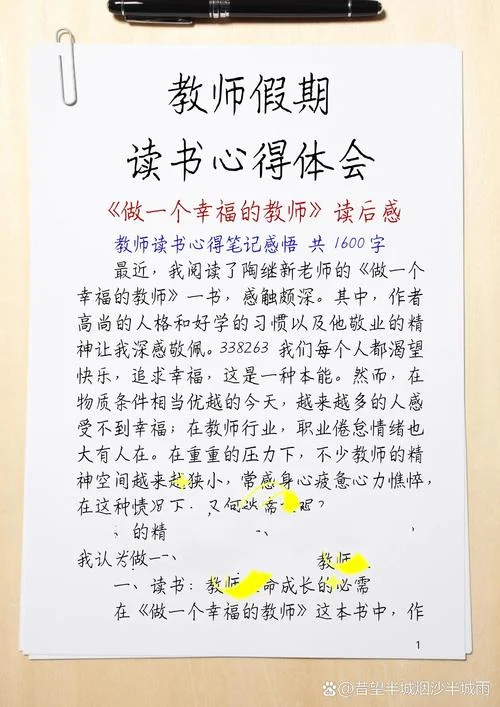 教师假期
读书心得体会
《做一个幸福的教师》读后感
教师读书心得笔记感悟 共 1600 字
最近，我阅读了陶继新老师的《做一个
幸福的教师》一书，感触颇深。其中，作者
高尚的人格和好学的习惯以及他敬业的精
神让我深感敬佩。338263 我们每个人都渴望
快乐，追求幸福，这是一种本能。然而，在
物质条件相当优越的今天，越来越多的人感
受不到幸福；在教师行业，职业倦怠情绪也
大有人在。在重重的压力下，不少教师的精
神空间越来越狭小，常感身心疲惫心力憔悴，
在这种情况下，又何
的精
我认为做一
教师
一、读书：教师 命成长的必需
在《做一个幸福的教师》这本书中，作
1
百家号@昔望半城烟沙半城雨